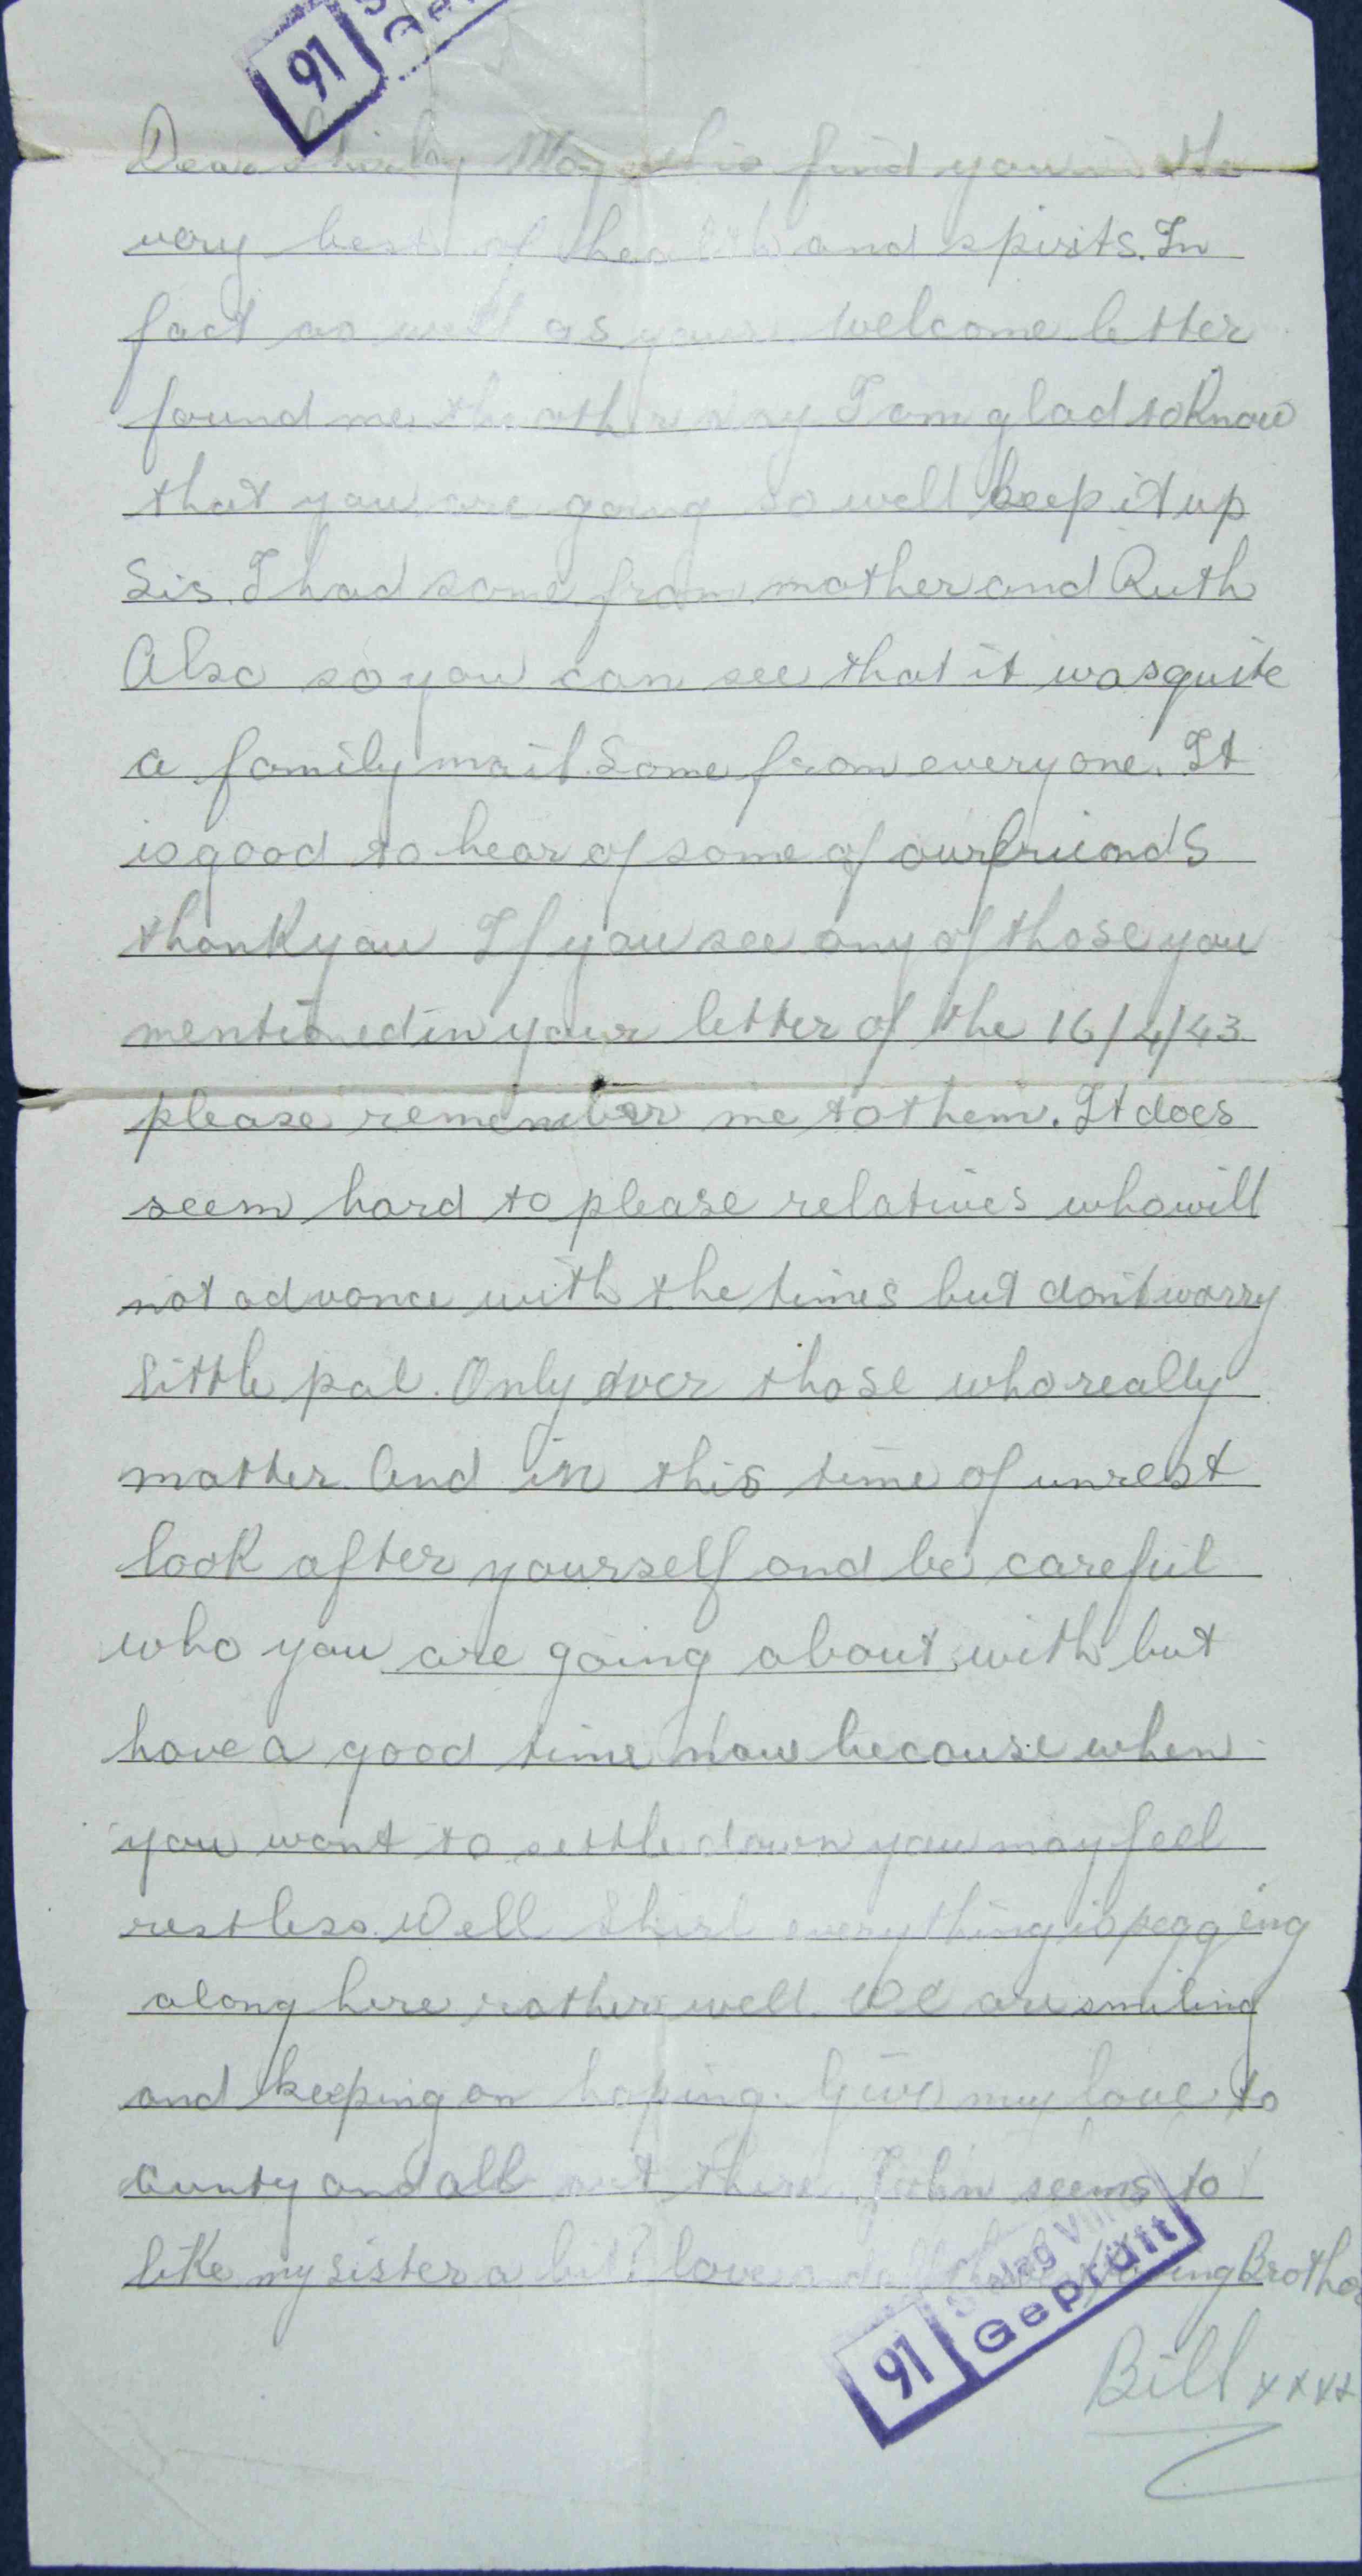 91
Dear Shirley May this find you in the
very best of health and spirits. In
fact as well as your welcome letter
found me the other day I am glad to Know
that you are going so well keep it up
Sis. I had some from mother and Ruth
Also so you can see that it was quite
a family mail. Some from everyone. It
is good to hear of some of our friends
thank you If you see any of those you
mentioned in your letter of the 16/4/43
please remember me to them. It does
seem hard to please relatives who will
not advance with the times but don't worry
little pal. Only over those who really
matter. And in this time of unrest
look after yourself and be careful
who you are going about with but
have a good time now because when
you want to settle down you may feel
restless. Well Shirl everything is pegging
along here rather well. We are smiling
and keeping on hoping. Give my love to
Aunty and all out there. John seems to
like my sister a bit? love and all the Loving Brother
91 Stalag VIII Geprüft
Bill xxxx